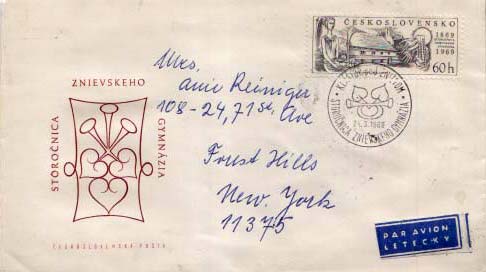 STOROČNICA
ZNIEVSKEHO
GYMNÁZIA
ČESKOSLOVENSKÁ POŠTA
ČESKOSLOVENSKO
1869
1969
60h
KLÁŠTOR POD ZNIEVOM
21.8.1969
STOROČNICA ZNIEVSKEHO GYMNÁZIA
Mrs.
Anie Reiniger
108-24, 71 st. Ave
Forest Hills
New York
11375
PAR AVION
LETECKY